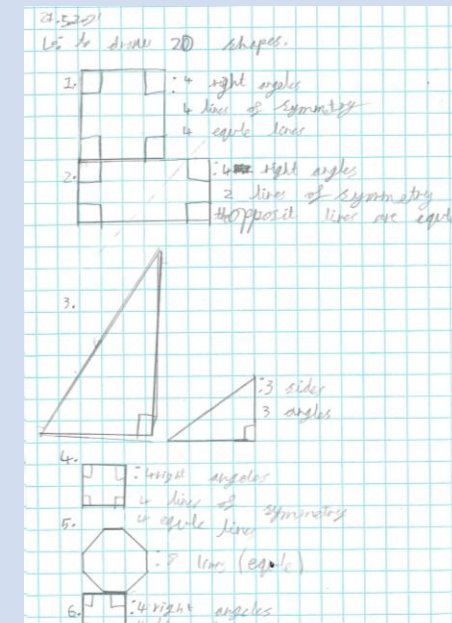 Lo: to draw 2D shapes.
1. : 4 right angles
4 lines of symmetry
4 equle lines
2. : 4 right angles
2 lines of symmetry
opposit lines are equle
3.
: 3 sides
3 angles
4. : 4 right angeles
4 lines of symmetry
4 equle line
5. : 8 lines (equle)
6. : 4 right angeles